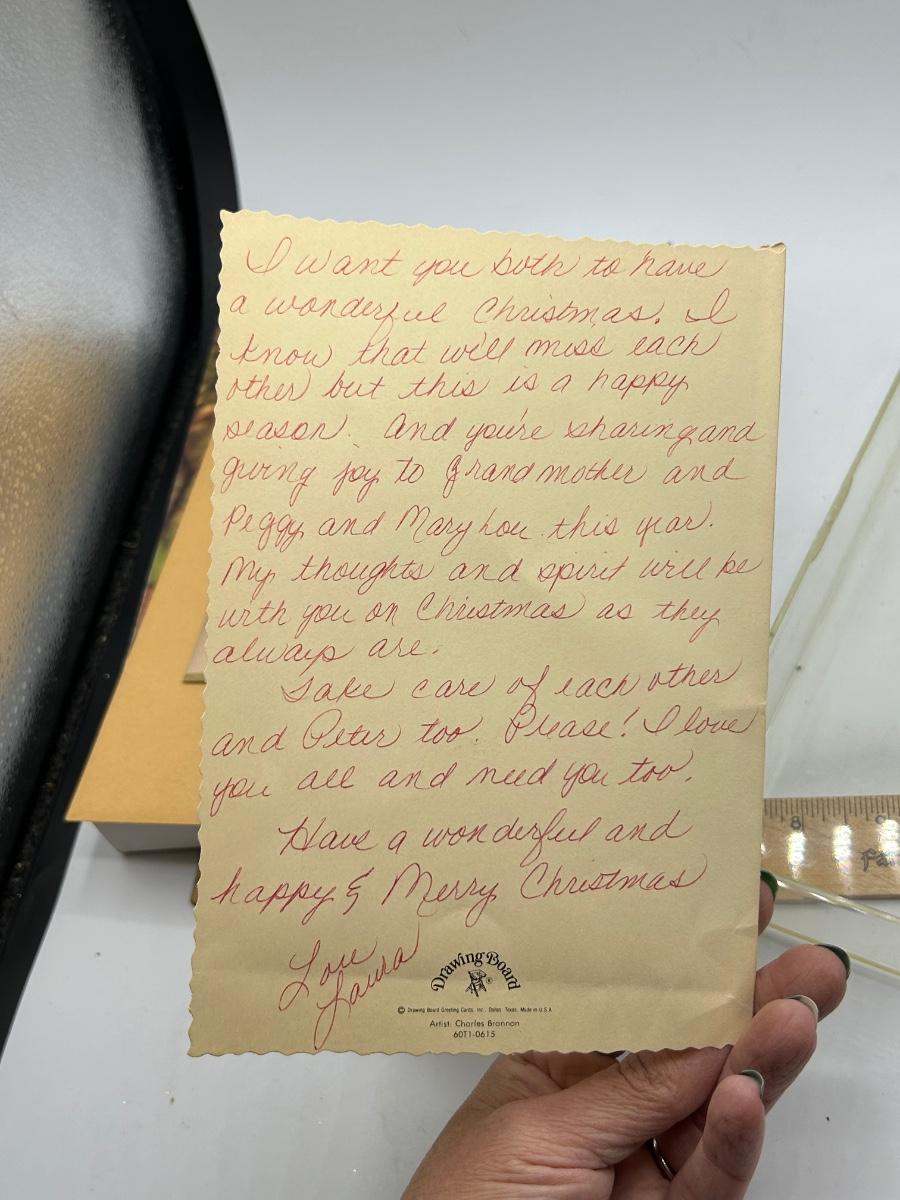 I want you both to have
a wonderful Christmas. I
know that we'll miss each
other but this is a happy
season. And you're sharing and
giving joy to Grandmother and
Peggy and Mary Lou this year.
My thoughts and spirit will be
with you on Christmas as they
always are.
Take care of each other
and Peter too. Please! I love
you all and need you too.
Have a wonderful and
happy & Merry Christmas
Love
Laura
Drawing Board
®
© Drawing Board Greeting Cards, Inc., Dallas, Texas, Made in U.S.A.
Artist: Charles Brannon
60T1-0615
8
9